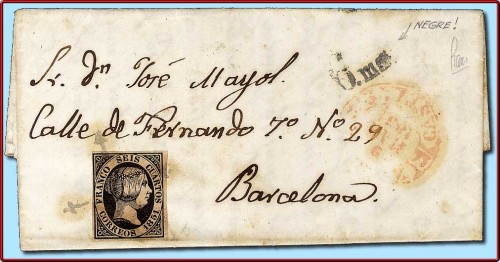 NEGRE!
6.ms
Sr. Dn. José Mayol.
Calle de Fernando 7º. Nº 29
Barcelona.
FRANCO SEIS CUARTOS
CORREOS 1851